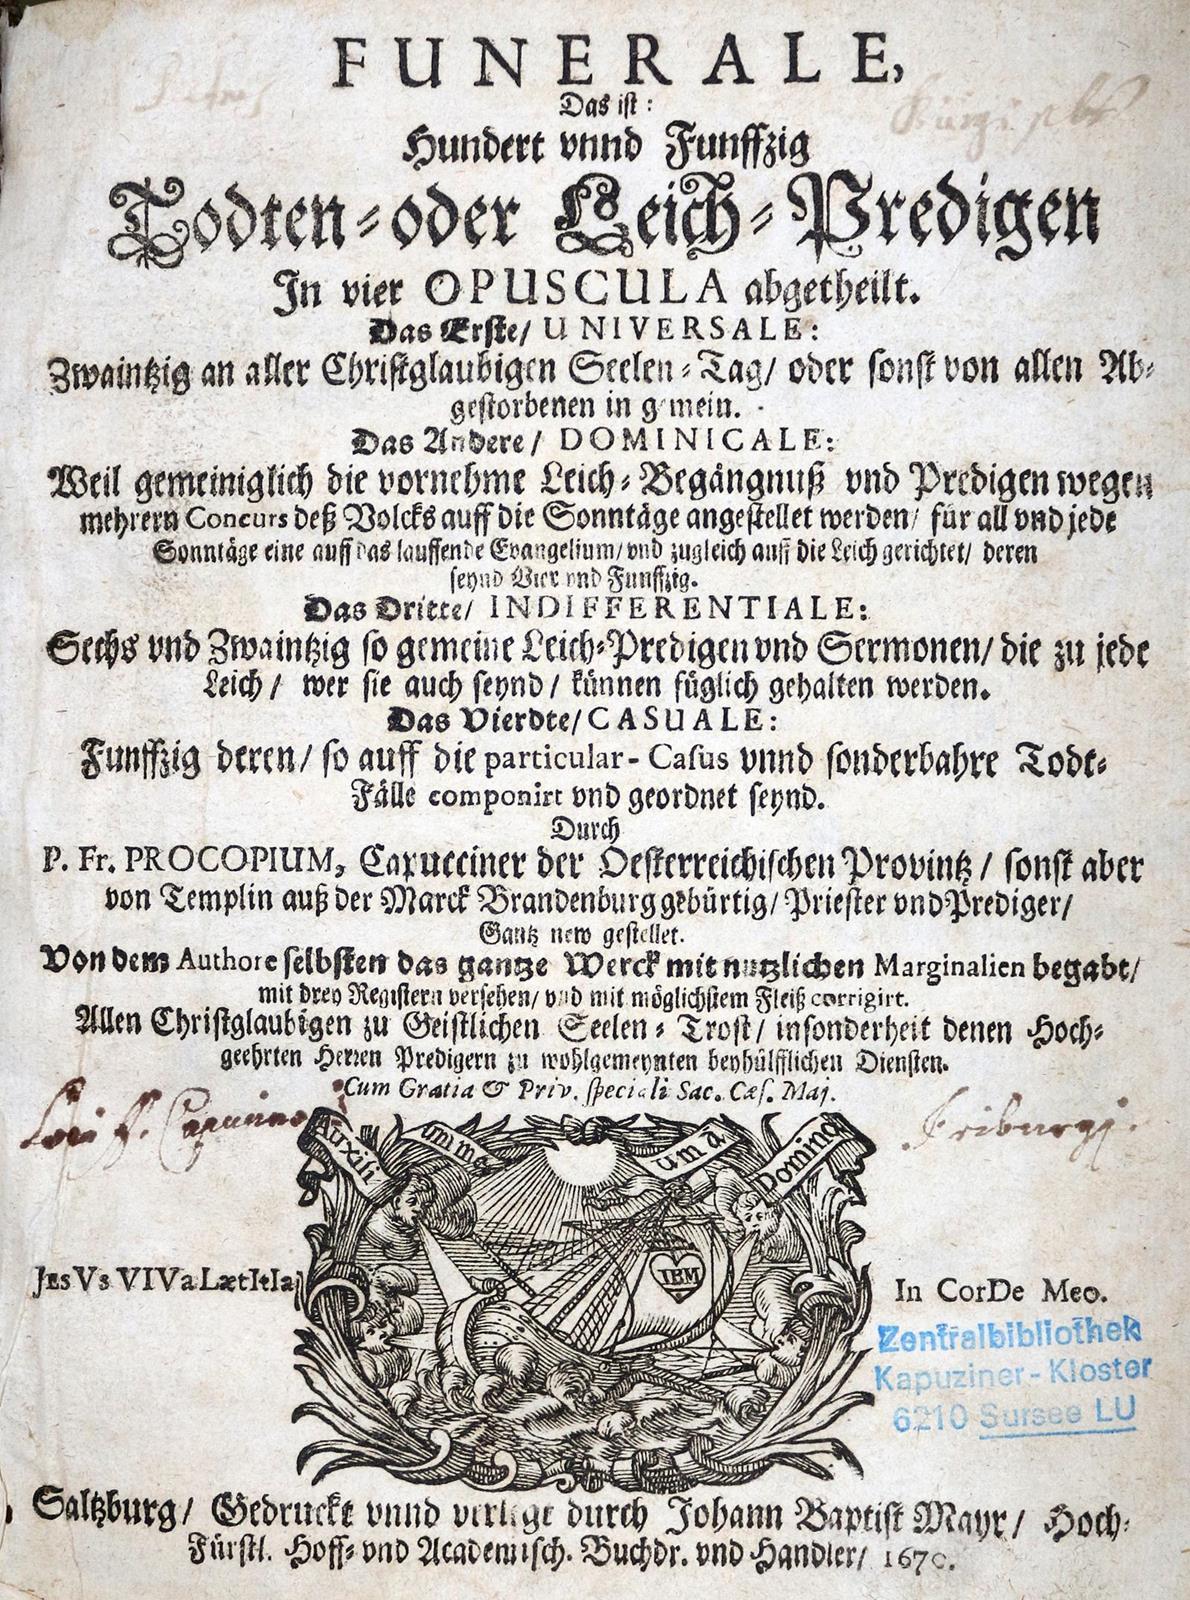 FUNERALE,
Das ist:
Hundert vnnd Funffzig
Todten-oder Leich-Predigen
In vier OPUSCULA abgetheilt.
Das Erste/ UNIVERSALE:
Zwaintzig an aller Christglaubigen Seelen-Tag/ oder sonst von allen Ab-
gestorbenen in gemein.
Das Andere/ DOMINICALE:
Weil gemeiniglich die vornehme Leich-Begängnuß vnd Predigen wegen
mehrern Concurs deß Volcks auff die Sonntäge angestellet werden/ für all vnd jede
Sonntäge eine auff das lauffende Evangelium/ vnd zugleich auff die Leich gerichtet/ deren
seynd Vier vnd Funffzig.
Das Dritte/ INDIFFERENTIALE:
Sechs vnd Zwaintzig so gemeine Leich-Predigen vnd Sermonen/ die zu jede
Leich/ wer sie auch seynd/ künnen füglich gehalten werden.
Das Vierdte/ CASUALE:
Funffzig deren/ so auff die particular-Casus vnnd sonderbahre Todt-
Fälle componirt vnd geordnet seynd.
Durch
P. Fr. PROCOPIUM, Capucciner der Oesterreichischen Provintz/ sonst aber
von Templin auß der Marck Brandenburg gebürtig/ Priester vnd Prediger/
Gantz new gestellet.
Von dem Authore selbsten das gantze Werck mit nutzlichen Marginalien begabt/
mit drey Registern versehen/ vnd mit möglichstem Fleiß corrigirt.
Allen Christglaubigen zu Geistlichen Seelen-Trost/ insonderheit denen Hoch-
geehrten Herren Predigern zu wohlgemeynten beyhülfflichen Diensten.
Cum Gratia & Priv. speciali Sac. Cæs. Maj.
Friburgi.
Auxili um me um a Domino
IBM
JEsVs VIVa LætItIa
In CorDe Meo.
Zentralbibliothek
Kapuziner-Kloster
6210 Sursee LU
Saltzburg/ Gedruckt vnnd verlegt durch Johann Baptist Mayr/ Hoch-
Fürstl. Hoff- vnd Academisch. Buchdr. vnd Handler/ 1670.